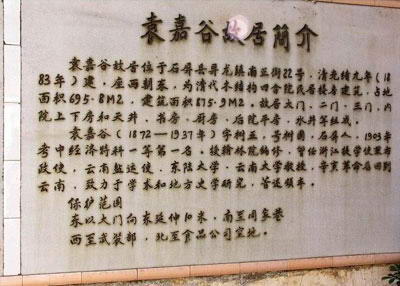 袁嘉谷故居简介
袁嘉谷故居位于石屏县异龙镇南正街22号，清光绪九年（18
83年）建，座西朝东，为清代木结构四合院民居楼房建筑，占地
面积695.8M2，建筑面积875.9M2，故居大门，二门，三门，内
院上下房和天井，书房，厨房，后院平房，水井等组成。
袁嘉谷（1872—1937年）字树五，号树圃，石屏人，1903年
考中经济特科一等第一名，授翰林院编修，曾任浙江提学使署布
政使，云南盐运使，东陆大学，云南大学教授，辛亥革命后回到
云南，致力于学术和地方史学研究，著述颇丰。
保护范围
东以大门向东延伸10米，南至阁
西至武装部，北至食品公司空地。